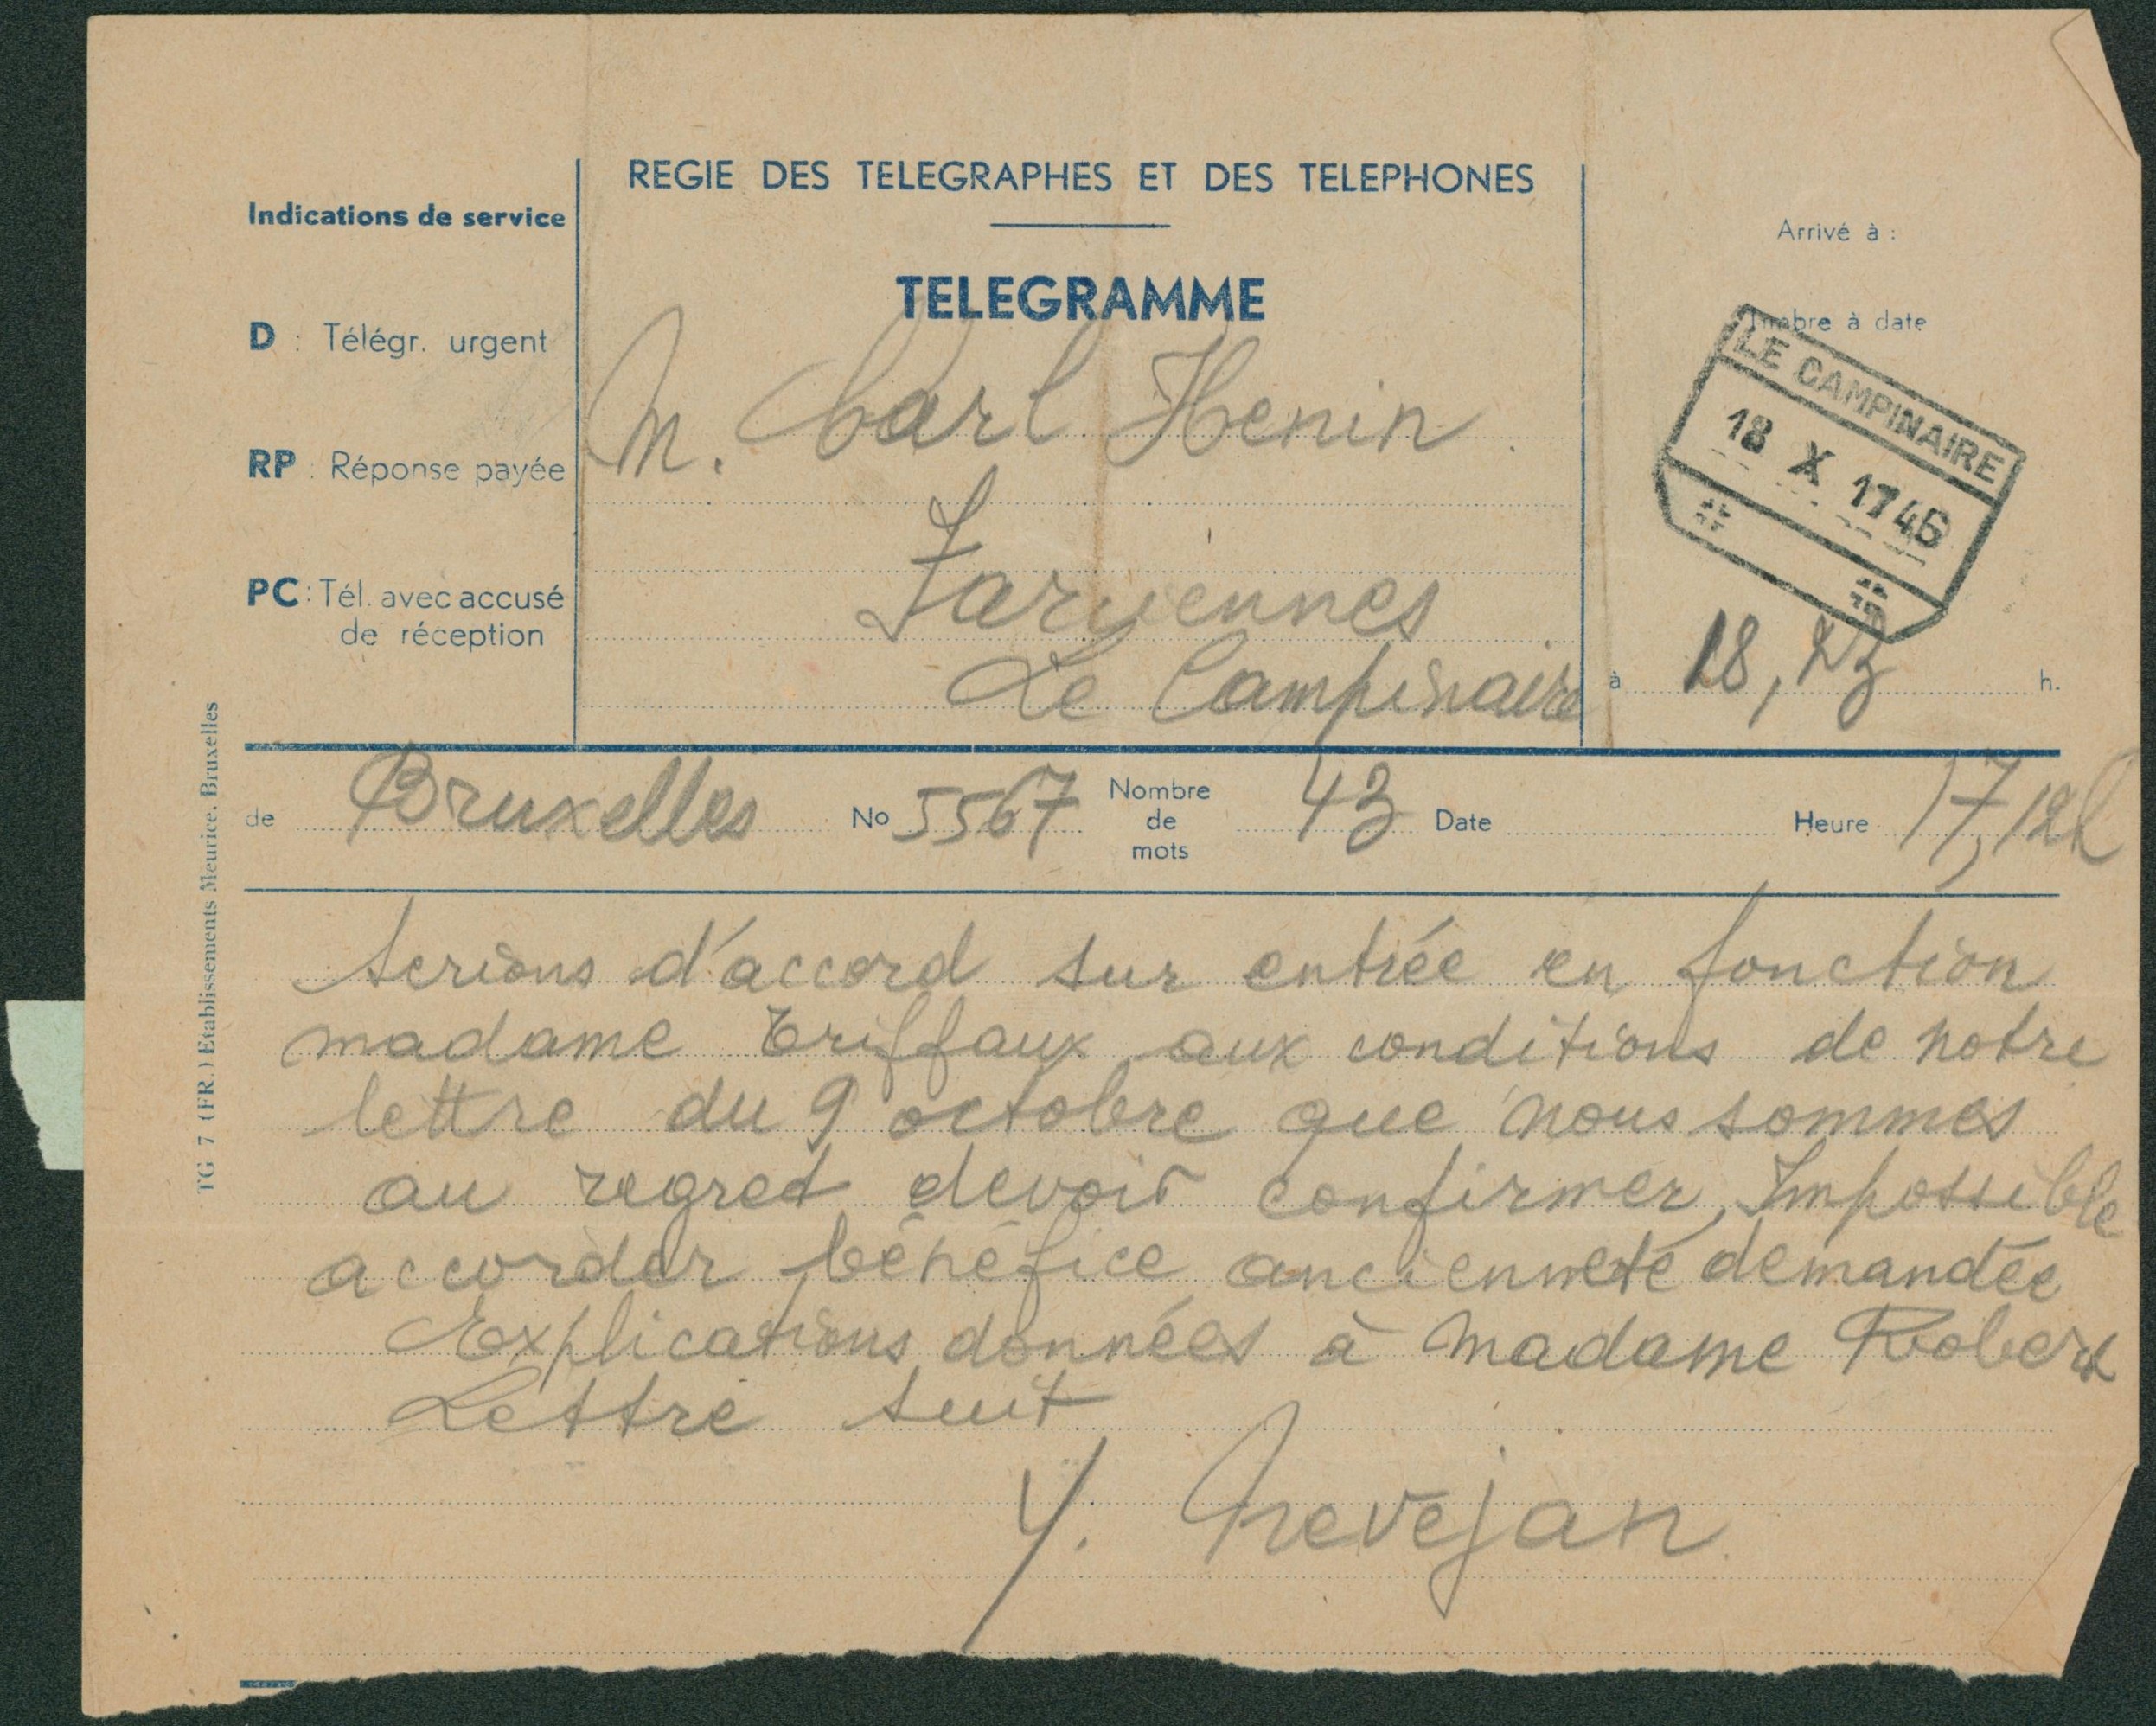 REGIE DES TELEGRAPHES ET DES TELEPHONES
TELEGRAMME
Indications de service
D : Télégr. urgent
RP : Réponse payée
PC : Tél. avec accusé
de réception
M. Carl Henin
Farciennes
Le Campinaire
Arrivé à :
Timbre à date
LE CAMPINAIRE
18 X 1746
à 18, h.
de Bruxelles No 5567 Nombre de mots 43 Date Heure 17,12
serions d'accord sur entrée en fonction
madame Triffaux aux conditions de notre
lettre du 9 octobre que nous sommes
au regret devoir confirmer, Impossible
accorder bénéfice ancienneté demandée
Explications données à Madame Robert
Lettre suit
Y. Nevejan
TG 7 (FR.) Etablissements Meurice. Bruxelles